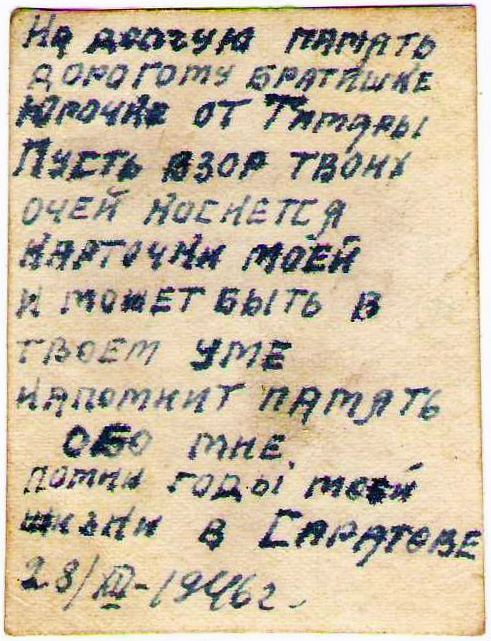 На долгую память
дорогому братишке
Юрочке от Тамары
Пусть взор твоих
очей коснется
карточки моей
и может быть в
твоем уме
напомнит память
обо мне
помни годы моей
жизни в Саратове
28/III-1946г.